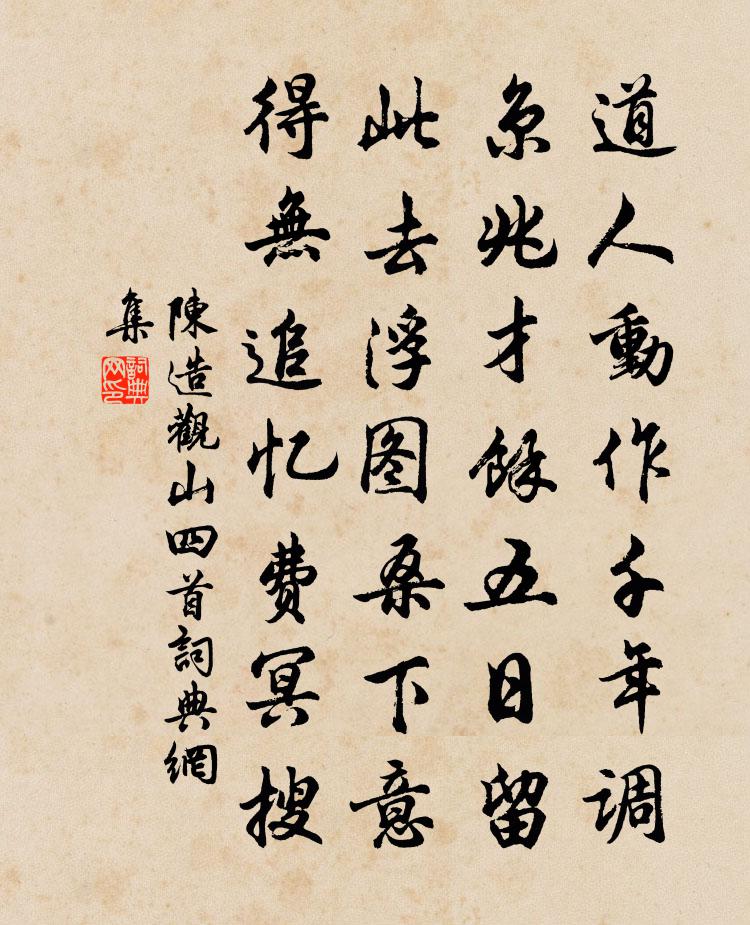 道人動作千年調
京兆才餘五日留
此去浮图桑下意
得無追忆费冥搜
陳造觀山四首詞典網
集
詞典網印